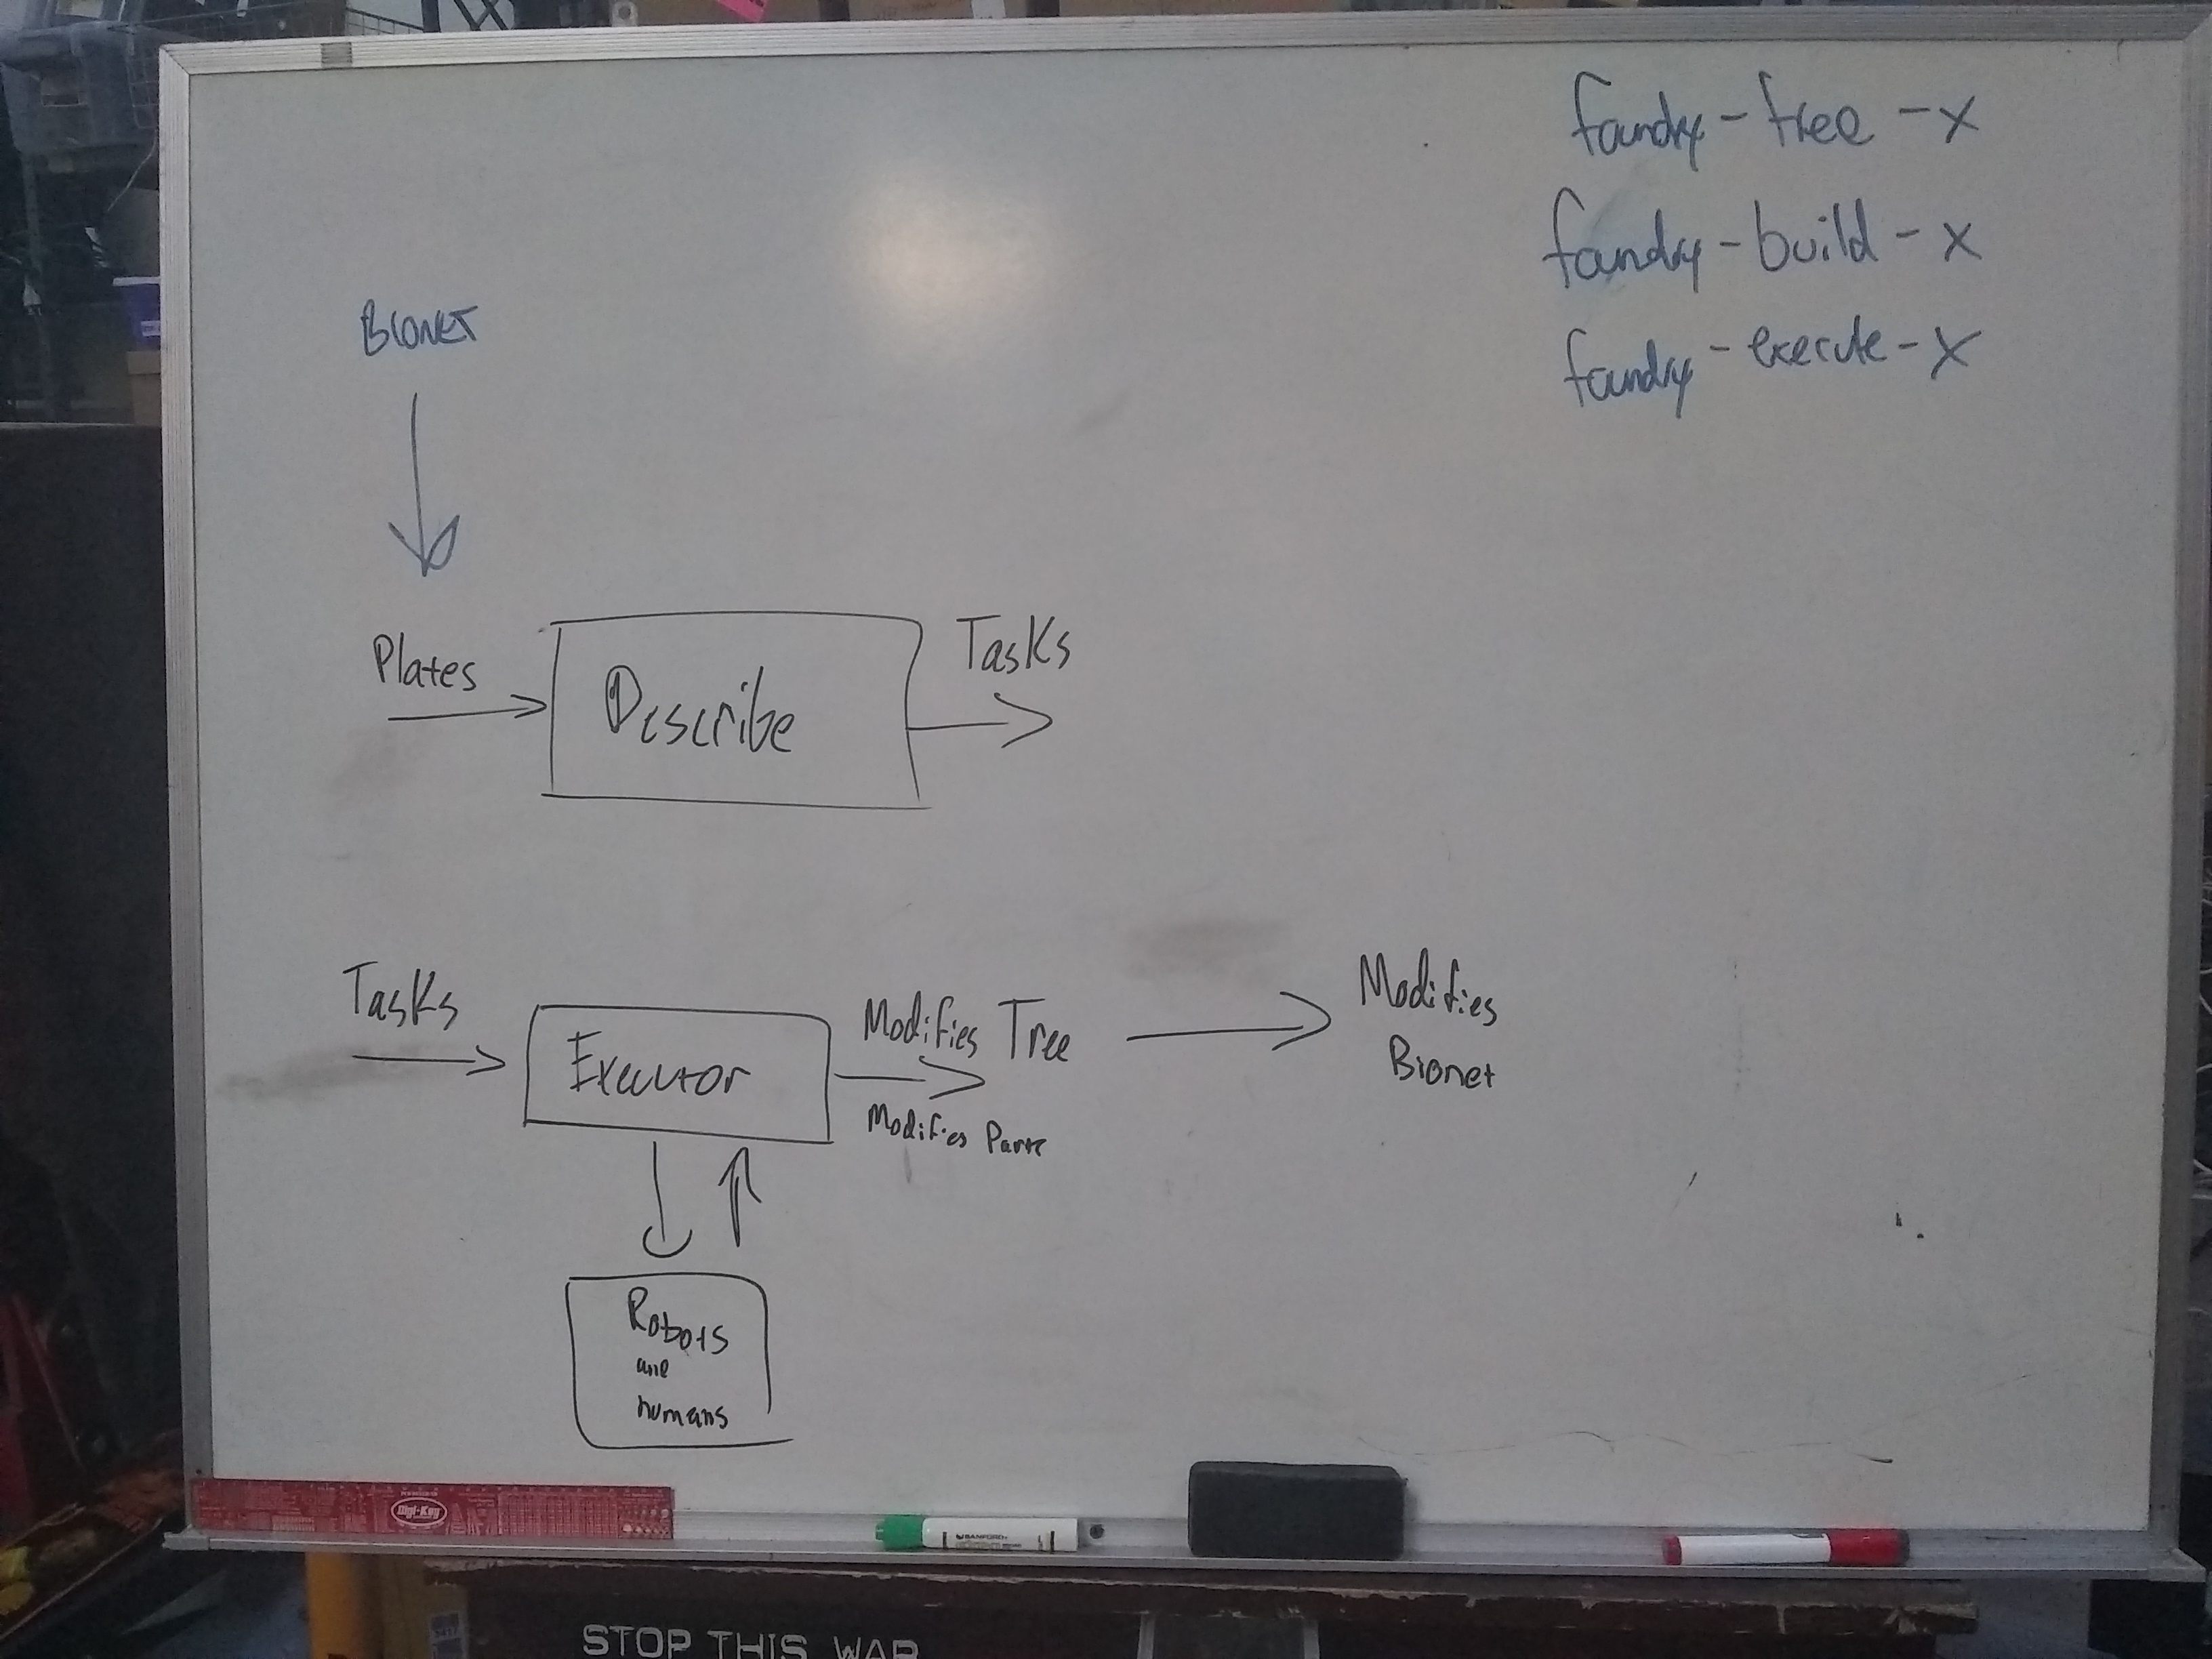 foundry - tree - x
foundry - build - x
foundry - execute - x
BIONET
Plates
Describe
Tasks
Tasks
Executor
Modifies Tree
Modifies Parts
Modifies
Bionet
Robots
and
humans
Digi-Key
SANFORD
STOP THIS WAR